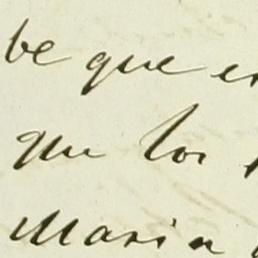 be que e
que los
Maria